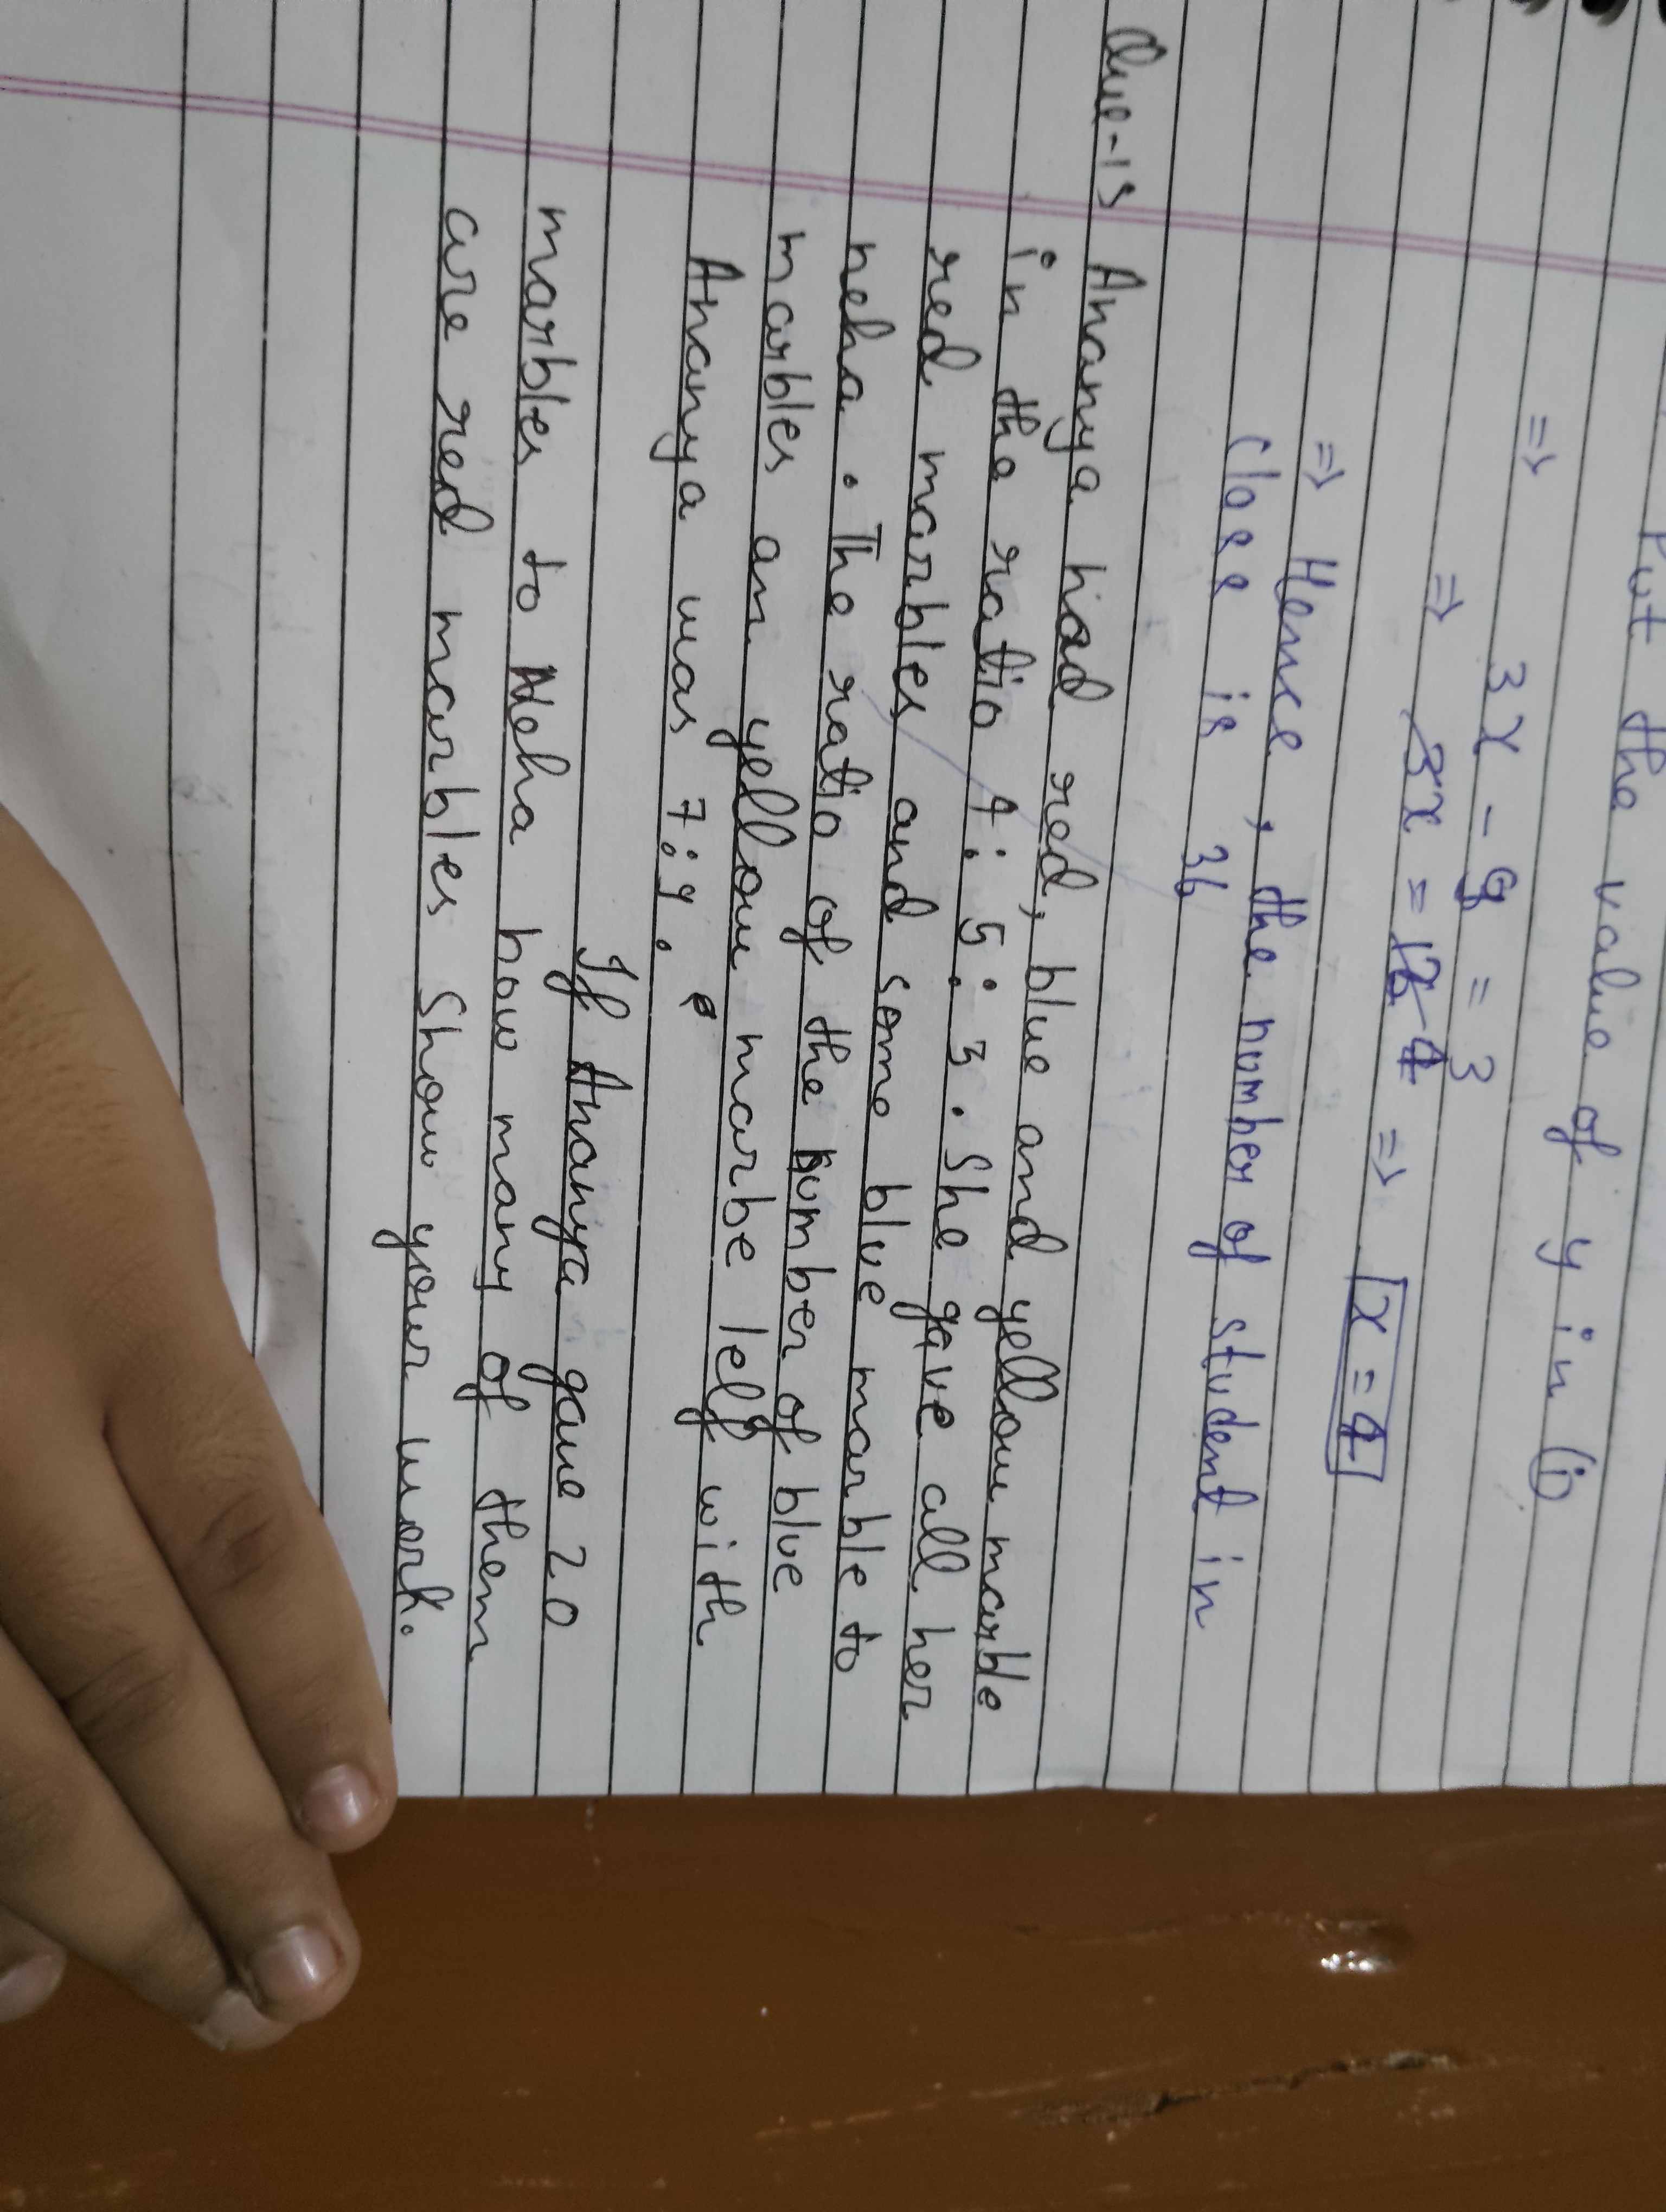 Put the value of y in (i)
=> 3x - 9 = 3
=> 3x = 12 4 => x = 4
=> Hence, the number of student in
class is 36
Que-15 Ananya had red, blue and yellow marble
in the ratio 4 : 5 : 3. She gave all her
red marbles and some blue marble to
neha. The ratio of the number of blue
marbles an yellow marbe left with
Ananya was 7:9.
If Ananya gave 20
marbles to Neha how many of them
are red marbles show your work.